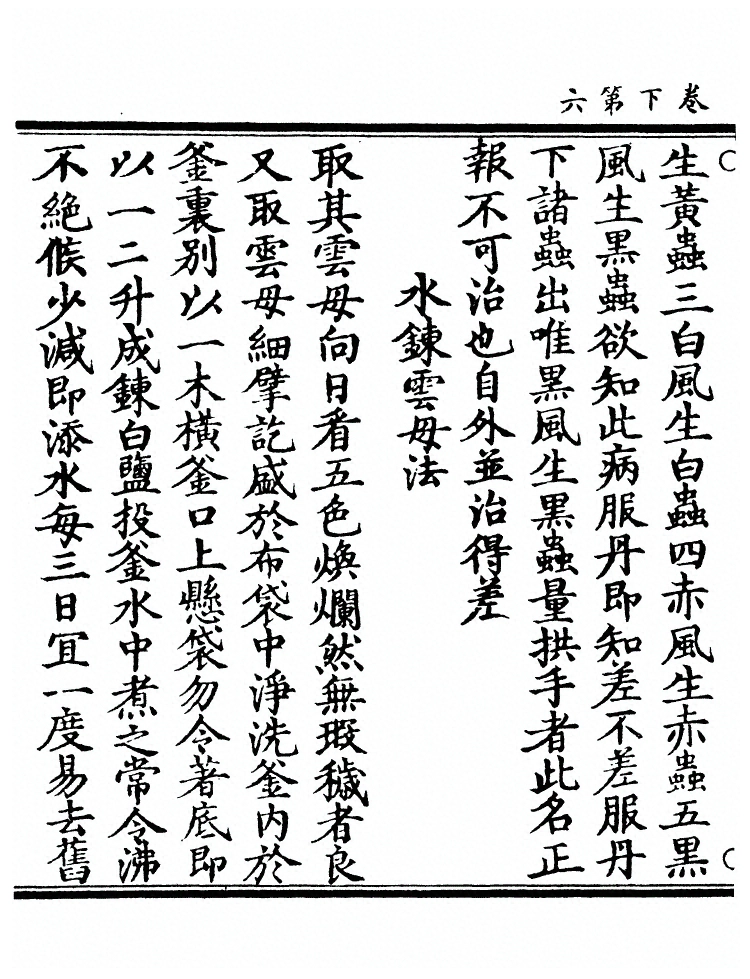 卷下第六
生黃蟲三白風生白蟲四赤風生赤蟲五黑
風生黑蟲欲知此病服丹即知差不差服丹
下諸蟲出唯黑風生黑蟲量拱手者此名正
報不可治也自外並治得差
水鍊雲母法
取其雲母向日看五色煥爛然無瑕穢者良
又取雲母細擘訖盛於布袋中淨洗釜內於
釜裏別以一木橫釜口上懸袋勿令著底即
以一二升成鍊白鹽投釜水中煮之常令沸
不絕候少減即添水每三日宜一度易去舊